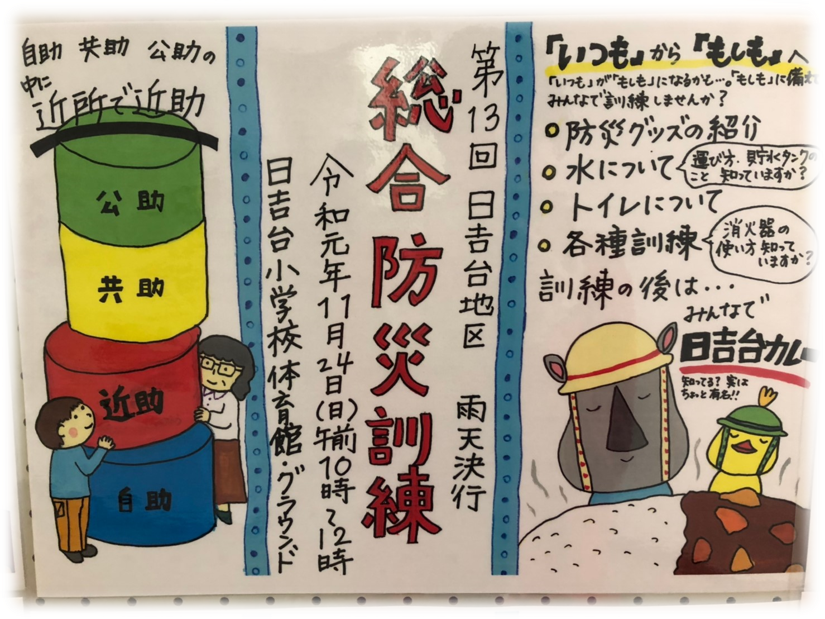 自助 共助 公助の
中に
近所で近助
公助
共助
近助
自助
第13回 日吉台地区 雨天決行
総合防災訓練
令和元年11月24日(日)午前10時〜12時
日吉台小学校体育館・グラウンド
「いつも」から「もしも」へ
「いつも」が「もしも」になるかも…。「もしも」に備え
みんなで訓練しませんか?
防災グッズの紹介
水について
運び方、貯水タンクの
こと 知っていますか?
トイレについて
各種訓練
消火器の
使い方知って
いますか?
訓練の後は…
みんなで
日吉台カレー
知ってる?実は
ちょっと有名!!